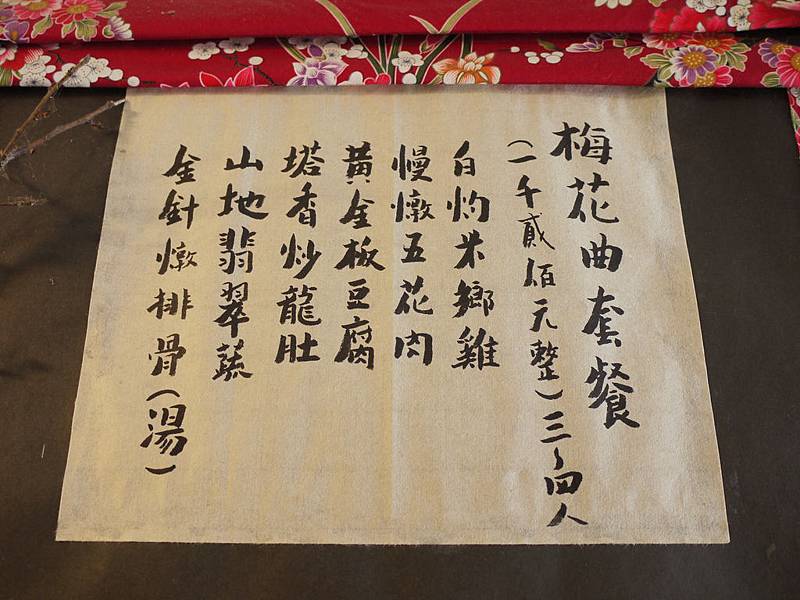 梅花曲套餐
(一千貳佰元整)三~四人
白灼米鄉雞
慢燉五花肉
黃金板豆腐
塔香炒龍肚
山地翡翠蔬
金針燉排骨(湯)